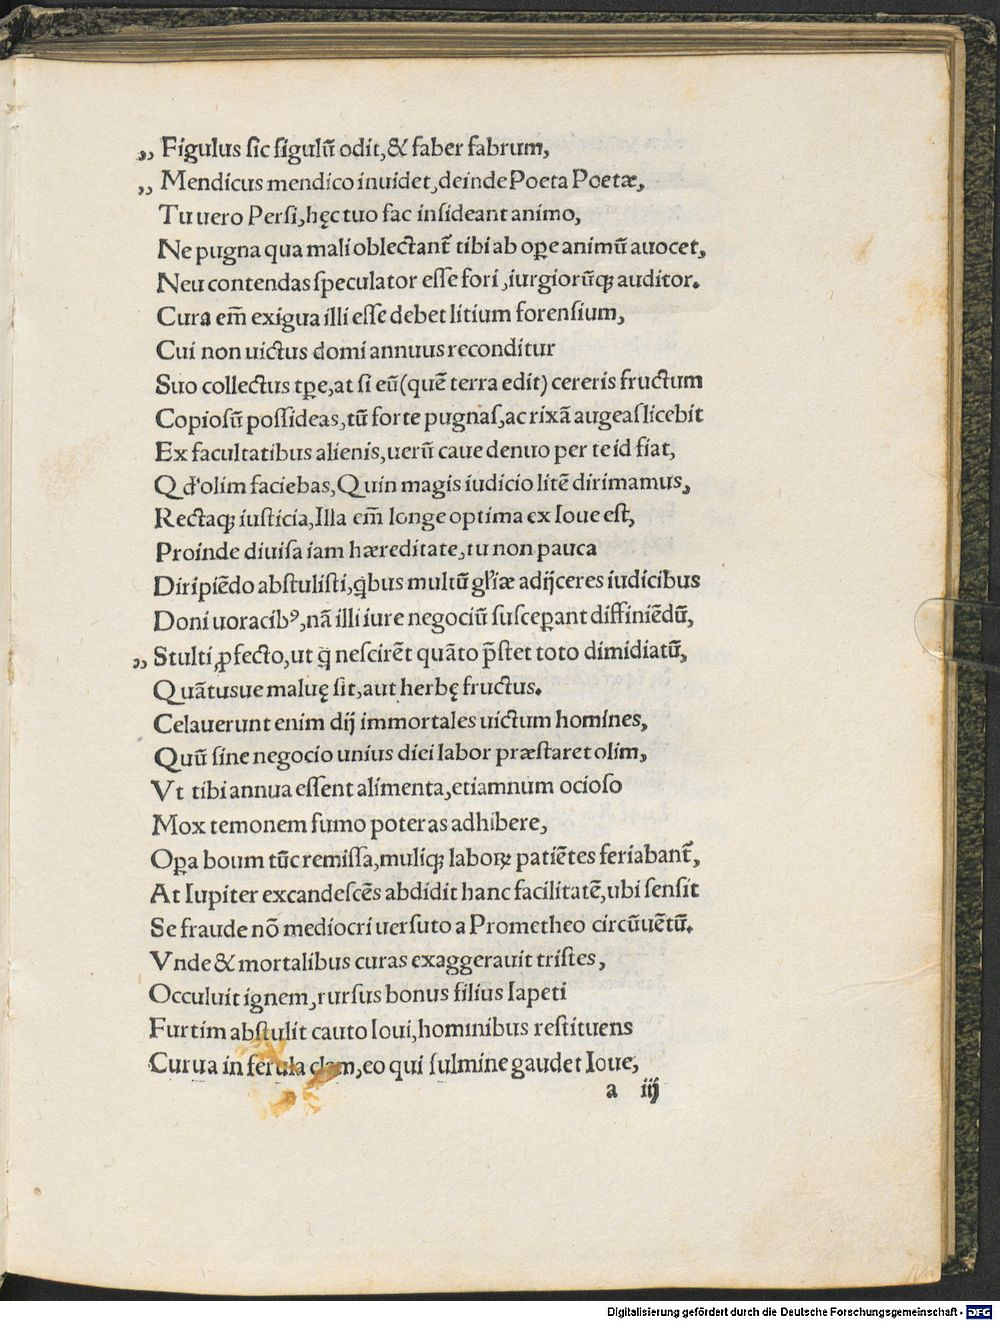 „ Figulus sic figulū odit,& faber fabrum,
„ Mendicus mendico inuidet,deinde Poeta Poetæ,
Tu uero Persi,hęc tuo fac insideant animo,
Ne pugna qua mali oblectant᷑ tibi ab oꝑe animū auocet,
Neu contendas speculator esse fori,iurgiorūqꝫ auditor.
Cura em̄ exigua illi esse debet litium forensium,
Cui non uictus domi annuus reconditur
Suo collectus tꝑe,at si eū(quē terra edit) cereris fructum
Copiosū possideas,tū forte pugnas,ac rixā augeas licebit
Ex facultatibus alienis,uerū caue denuo per te id fiat,
Qđ olim faciebas,Quin magis iudicio litē dirimamus,
Rectaqꝫ iusticia,Illa em̄ longe optima ex Ioue est,
Proinde diuisa iam hæreditate,tu non pauca
Diripiēdo abstulisti,q̇bus multū gl'iæ adijceres iudicibus
Doni uoracibꝰ,nā illi iure negociū susceꝑant diffiniēdū,
„ Stulti ꝓfecto,ut q̇ nescirēt quāto p̄stet toto dimidiatū,
Quātusue maluę sit,aut herbę fructus.
Celauerunt enim dij immortales uictum homines,
Quū sine negocio unius diei labor præstaret olim,
Vt tibi annua essent alimenta,etiamnum ocioso
Mox temonem fumo poteras adhibere,
Oꝑa boum tūc remissa,muliqꝫ laboꝝ patiētes feriabant᷑,
At Iupiter excandescēs abdidit hanc facilitatē,ubi sensit
Se fraude nō mediocri uersuto a Prometheo circūuētū.
Vnde & mortalibus curas exaggerauit tristes,
Occuluit ignem,rursus bonus filius Iapeti
Furtim abstulit cauto Ioui,hominibus restituens
Curua in ferula clam,eo qui fulmine gaudet Ioue,
a iij
Digitalisierung gefördert durch die Deutsche Forschungsgemeinschaft - DFG